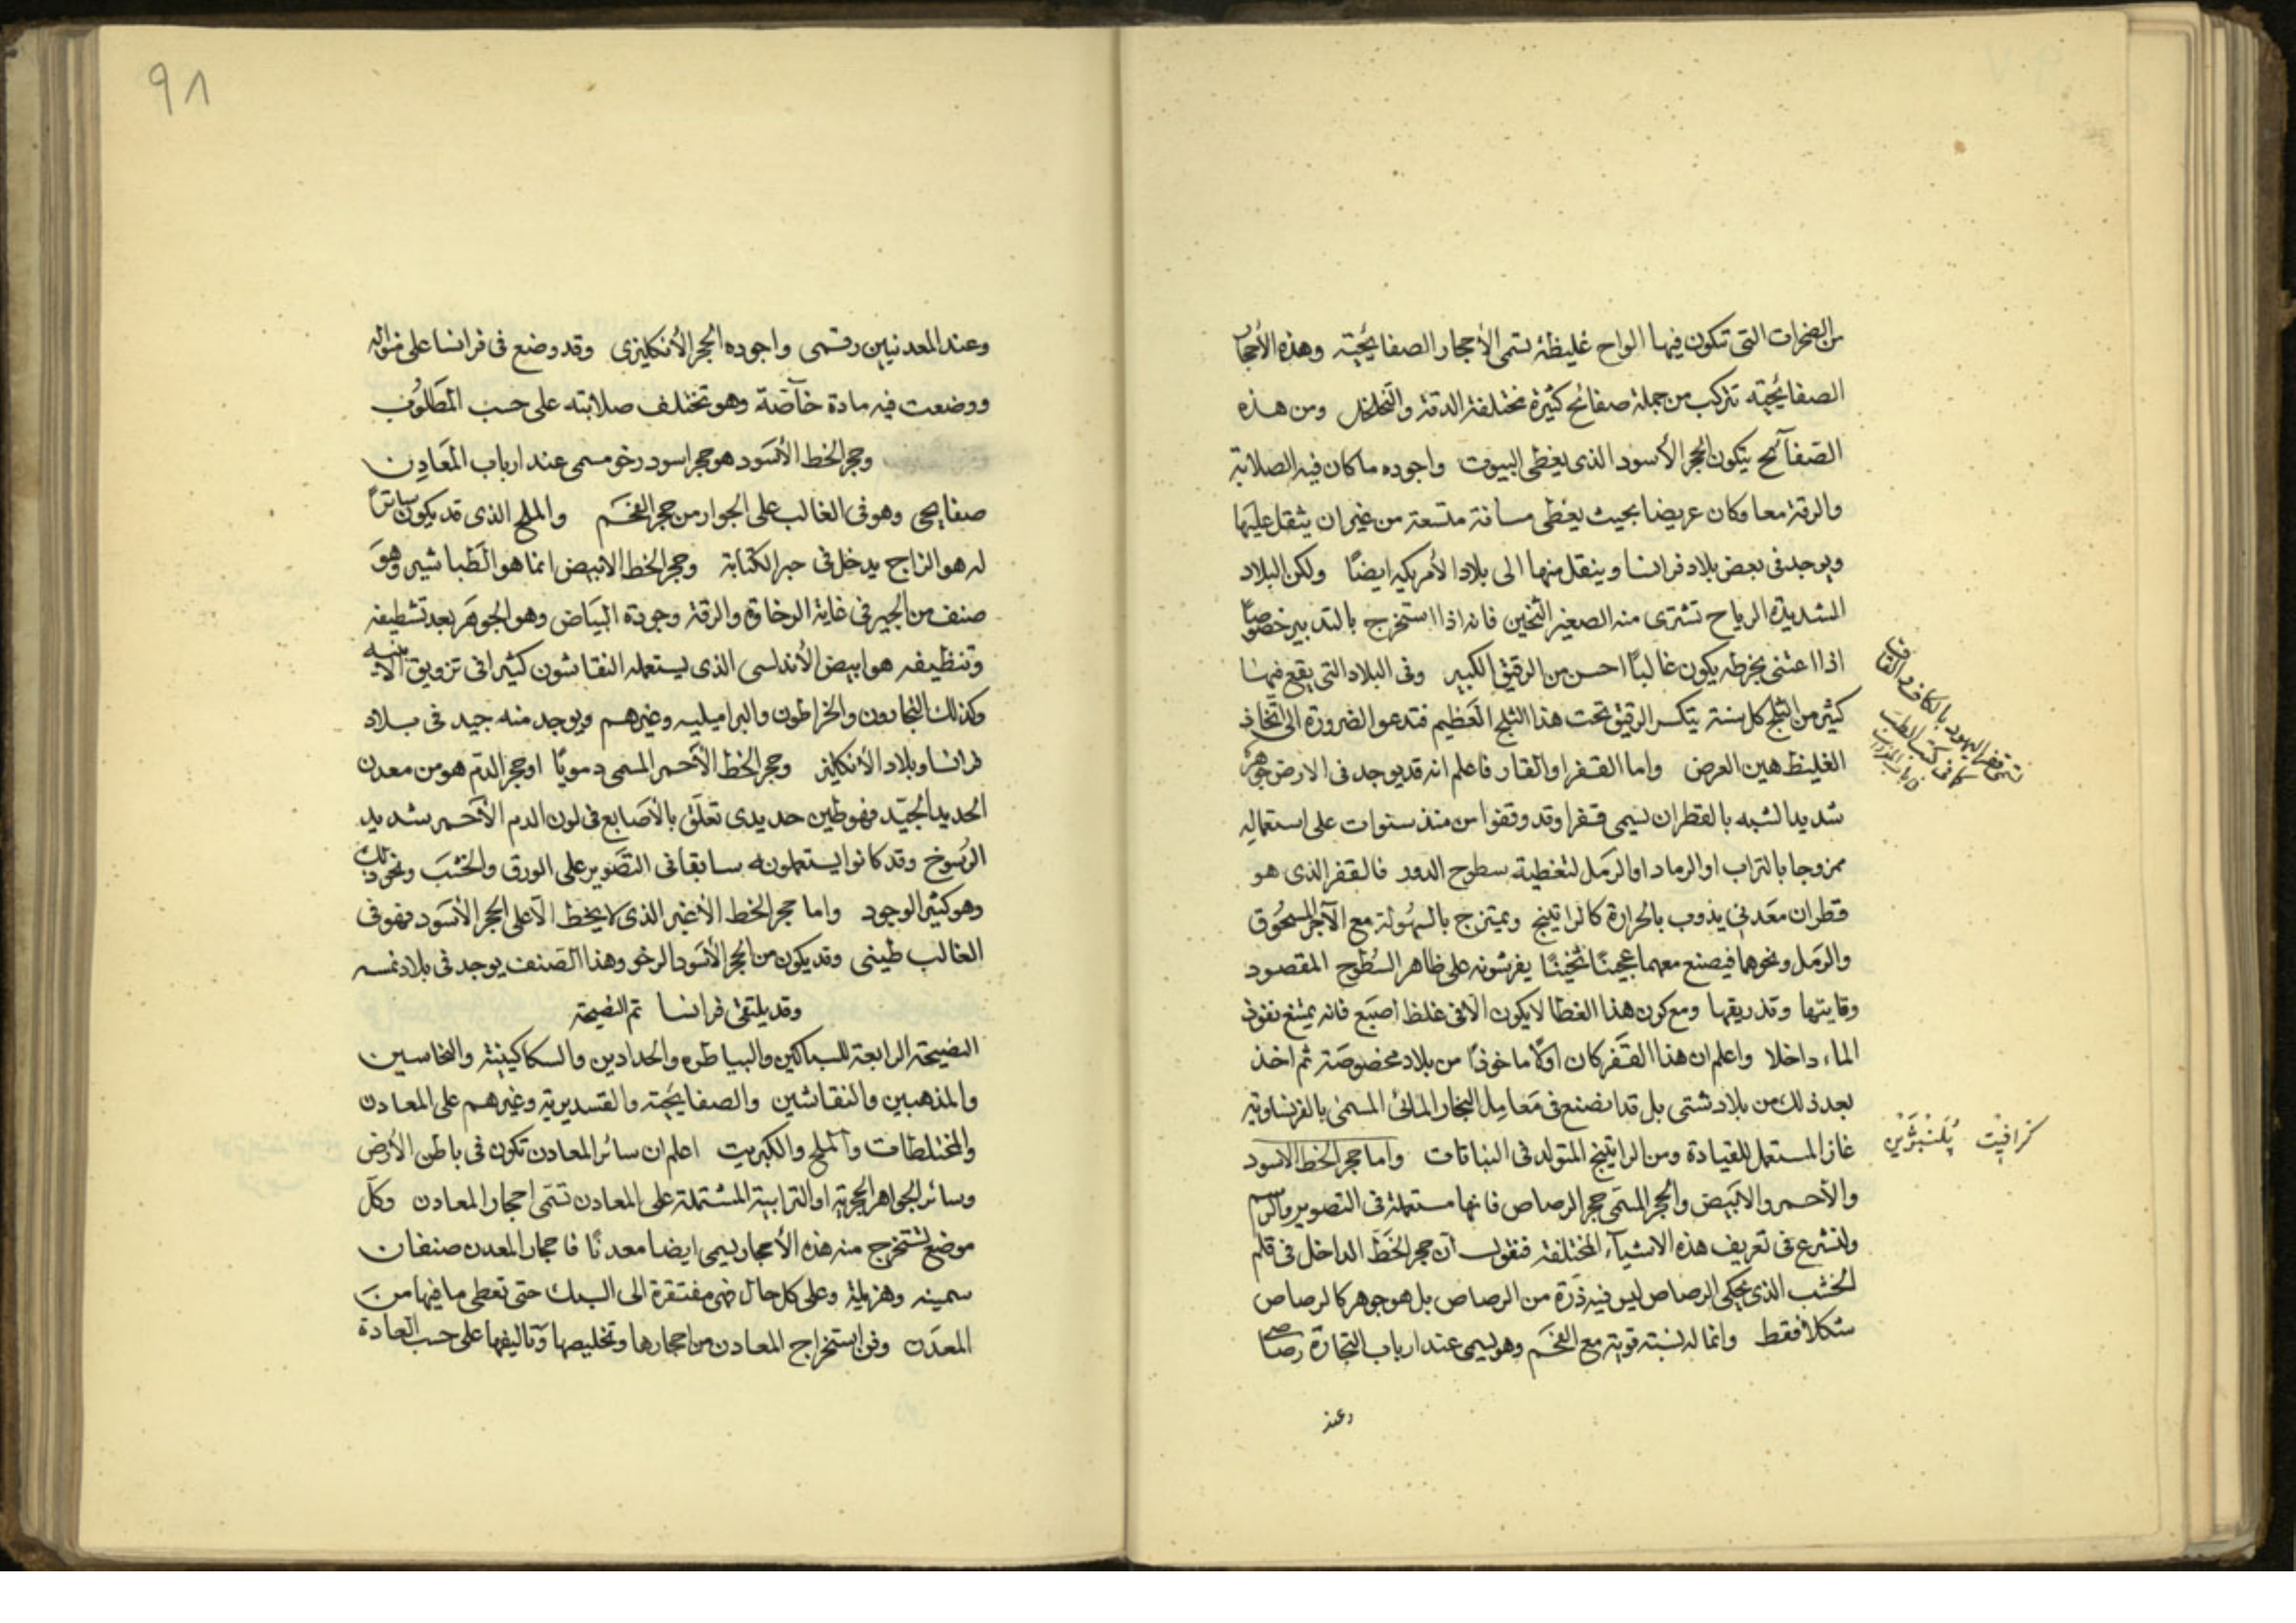 من الصخرات التى تتكون فيها الواح غليظة تسمى الأحجار الصفايحية وهذه الأحجار
الصفايحية تتركب من جملة صفائح كثيرة مختلفة الدقة والتخلخل ومن هذه
الصفآئح يتكون الحجر الأسود الذى يغطى البيوت واجوده ما كان فيه الصلابة
والرقة معا وكان عريضا بحيث يغطى مسافة متسعة من غير ان يثقل عليها
ويوجد فى بعض بلاد فرانسا وينقل منها الى بلاد الأمريكه ايضًا ولكن البلاد
الشديدة الرياح تشترى منه الصغير الثخين فانه اذا استخرج بالتدبير خصوصًا
اذا اعتنى بخرطه يكون غالبًا احسن من الرقيق الكبير وفى البلاد التى يقع فيها
كثير من الثلج كل سنة يتكسر الرقيق تحت هذا الثلج العظيم فتدعو الضرورة الى اتخاذ
الغليظ هين العرض واما القفر او القار فاعلم انه قد يوجد فى الارض جوهر
شديد الشبه بالقطران يسمى قفرا وقد وقفوا من منذ سنوات على استعماله
ممزوجا بالتراب او الرماد او الرمل لتغطية سطوح الدور فالقفر الذى هو
قطران معدنى يذوب بالحرارة كالراتينج ويمتزج بالسهولة مع الآجر المسحوق
والرمل ونحوهما فيصنع معهما عجينًا ثخينًا يفرشونه على ظاهر السطوح المقصود
وقايتها وتدريقها ومع كون هذا الغطا لا يكون الا فى غلظ اصبع فانه يمنع نفوذ
الماء داخلا واعلم ان هذا القفر كان اولًا ماخوذًا من بلاد مخصوصة ثم اخذ
بعد ذلك من بلاد شتى بل قد انصنع فى معامل البخار المائى المسمى بالفرنساوية
غاز المستعمل للقيادة ومن الراتينج المتولد فى النباتات واما حجر الخط الاسود
والأحمر والابيض والحجر المسمى حجر الرصاص فانها مستعملة فى التصوير والرسم
ولنشرع فى تعريف هذه الاشيآء المختلفة فنقول ان حجر الخط الداخل فى قلم
الخشب الذى يحكى الرصاص ليس فيه ذرة من الرصاص بل هو جوهر كالرصاص
شكلا فقط وانما له نسبة قوية مع الفحم وهو يسمى عند ارباب التجارة رصاصى
وعند
يسمى قفر اليهود بالكاف و القاف
كما فى كتب الطب
كرافيت پلنبژين
٩٨
وعند المعدنيين رقسمى واجوده الحجر الأنكليزى وقد وضع فى فرانسا على منواله
ووضعت فيه مادة خآصة وهو تختلف صلابته على حسب المطلوب
وحجر الخط الأسود هو حجر اسود رخو مسمى عند ارباب المعادن
صفايحى وهو فى الغالب على الجوار من حجر الفحم والملح الذى قد يكون ساترًا
له هو الزاج يدخل فى حبر الكتابة وحجر الخط الابيض انما هو الطباشير وهو
صنف من الجير فى غاية الرخاوة والرقة وجودة البياض وهو الجوهر بعد تشطيفه
وتنظيفه هو ابيض الأندلسى الذى يستعمله النقاشون كثيرا فى تزويق الابنيه
وكذلك النجارون والخراطون والبراميليه وغيرهم ويوجد منه جيد فى بلاد
فرانسا وبلاد الأنكليز وحجر الخط الأحمر المسمى دمويًا او حجر الدم هو من معدن
الحديد الجيد فهو طين حديدى تعلق بالأصابع فى لون الدم الأحمر شديد
الرسوخ وقد كانوا يستعملونه سابقا فى التصوير على الورق والخشب ونحو ذلك
وهو كثير الوجود واما حجر الخط الأغبر الذى لا يخط الا على الحجر الأسود فهو فى
الغالب طينى وقد يكون من الحجر الأسود الرخو وهذا الصنف يوجد فى بلاد نمسه
وقد يلتقى فرانسا تم النصيحة
النصيحة الرابعة للسباكين والبياطره والحدادين والسكاكينية والنحاسين
والمذهبين والنقاشين والصفايحية والقسديرية وغيرهم على المعادن
والمختلطات والملح والكبريت اعلم ان سائر المعادن تكون فى باطن الأرض
وسائر الجواهر الحجرية او الترابية المشتملة على المعادن تسمى احجار المعادن وكل
موضع تستخرج منه هذه الأحجار يسمى ايضا معدنًا فاحجار المعدن صنفان
سمينه وهزيلة وعلى كل حال فهى مفتقرة الى السبك حتى تعطى ما فيها من
المعدن وفن استخراج المعادن من احجارها وتخليصها وتاليفها على حسب العادة